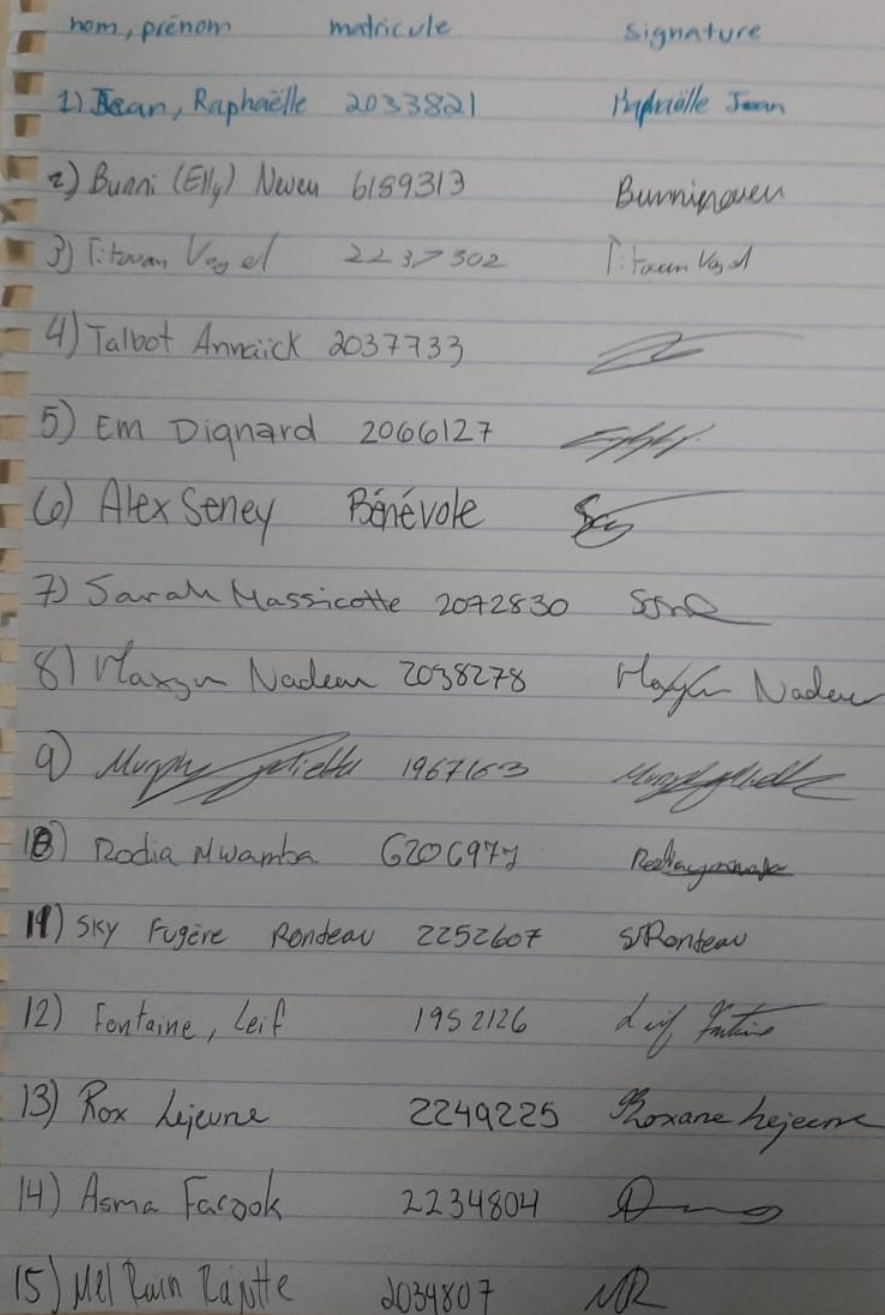 nom, prénom matricule signature
1) Jean, Raphaëlle 2033821 Raphaëlle Jean
2) Bunni (Elly) Neveu 6189313 Bunnineveu
3) Titouan Vogel 2237302 Titouan Vogel
4) Talbot Annaïck 2037733
5) Em Dignard 2066127
6) Alex Seney Bénévole
7) Sarah Massicotte 2072830
8) Maxym Nadeau 2038278 Maxym Nadeau
9) Murphy Juliette 1967163 Murphy Juliette
10) Rodia Mwamba 6206977
11) Sky Fugère Rondeau 2252607 SRondeau
12) Fontaine, Leif 1952126 Leif Fontaine
13) Rox Lejeune 2249225 Roxane Lejeune
14) Asma Farook 2234804
15) Mel Rain Rajotte 2034807 MR